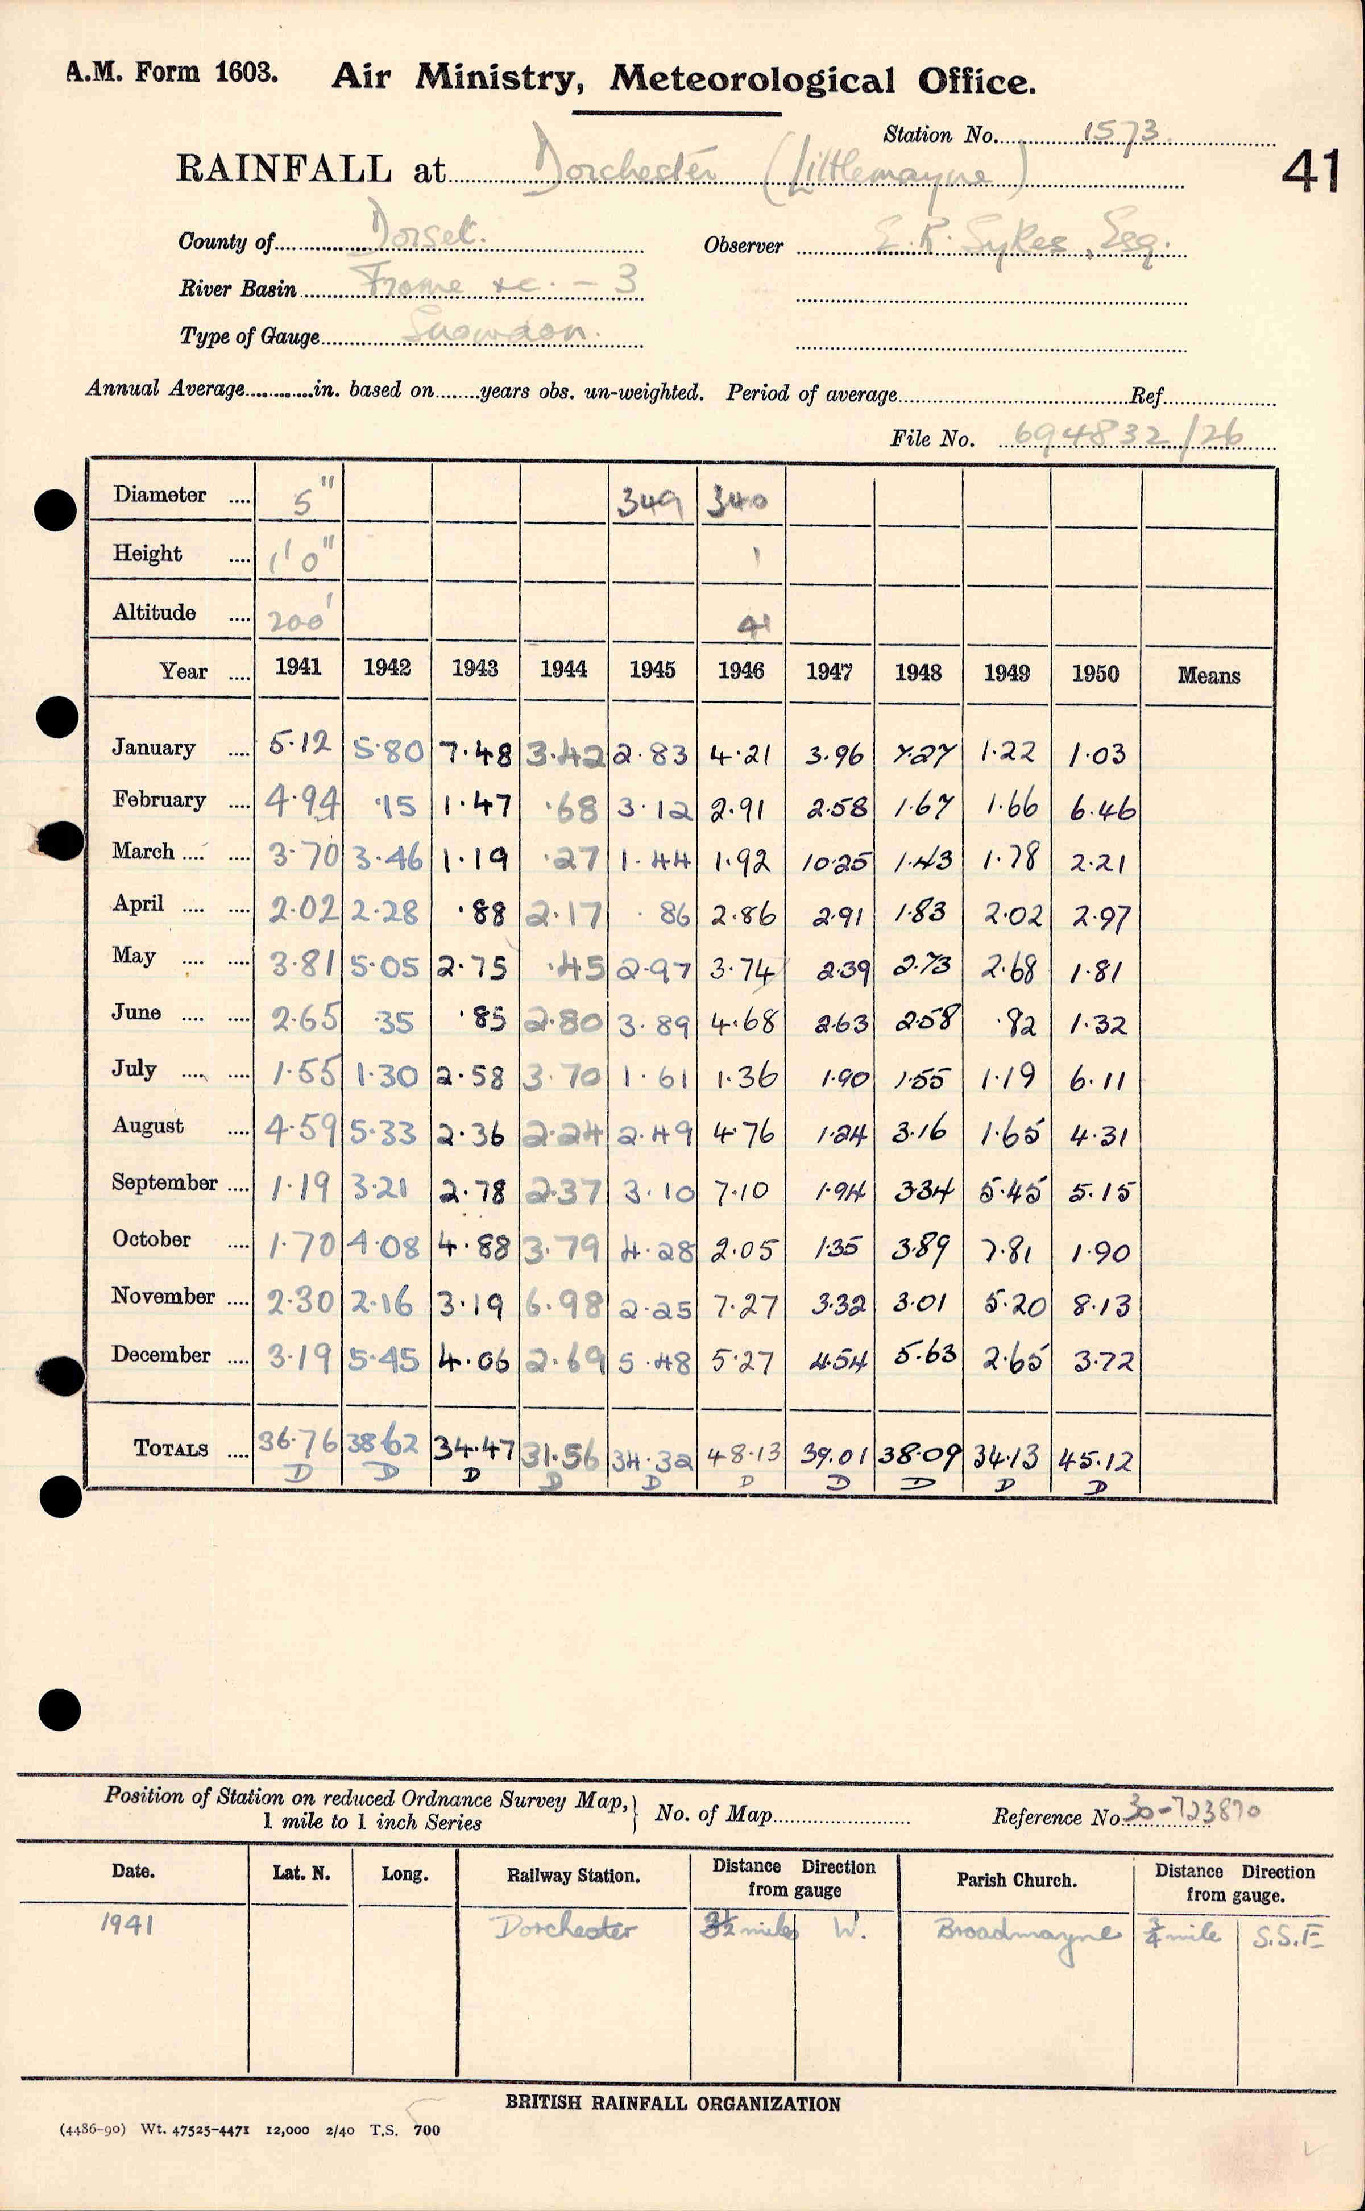 A.M. Form 1603. Air Ministry, Meteorological Office.
Station No. 1573
RAINFALL at Dorchester (Littlemayne) 41
County of Dorset. Observer E. R. Sykes, Esq.
River Basin Frome &c. - 3
Type of Gauge Snowdon.
Annual Average............in. based on........years obs. un-weighted. Period of average Ref.
File No. 694832/26
Diameter .... 5" 349 340
Height .... 1' 0" 1
Altitude .... 200' 41
Year .... 1941 1942 1943 1944 1945 1946 1947 1948 1949 1950 Means
January .... 5.12 5.80 7.48 3.42 2.83 4.21 3.96 7.27 1.22 1.03
February .... 4.94 .15 1.47 .68 3.12 2.91 2.58 1.67 1.66 6.46
March .... .... 3.70 3.46 1.19 .27 1.44 1.92 10.25 1.43 1.78 2.21
April .... .... 2.02 2.28 .88 2.17 .86 2.86 2.91 1.83 2.02 2.97
May .... .... 3.81 5.05 2.75 .45 2.97 3.74 2.39 2.73 2.68 1.81
June .... .... 2.65 .35 .85 2.80 3.89 4.68 2.63 2.58 .82 1.32
July .... .... 1.55 1.30 2.58 3.70 1.61 1.36 1.90 1.55 1.19 6.11
August .... 4.59 5.33 2.36 2.24 2.49 4.76 1.24 3.16 1.65 4.31
September .... 1.19 3.21 2.78 2.37 3.10 7.10 1.94 3.34 5.45 5.15
October .... 1.70 4.08 4.88 3.79 4.28 2.05 1.35 3.89 7.81 1.90
November .... 2.30 2.16 3.19 6.98 2.25 7.27 3.32 3.01 5.20 8.13
December .... 3.19 5.45 4.06 2.69 5.48 5.27 4.54 5.63 2.65 3.72
TOTALS .... 36.76 38.62 34.47 31.56 34.32 48.13 39.01 38.09 34.13 45.12
D D D D D D D D D D
Position of Station on reduced Ordnance Survey Map, 1 mile to 1 inch Series } No. of Map Reference No. 30-723870
Date. Lat. N. Long. Railway Station. Distance Direction from gauge Parish Church. Distance Direction from gauge.
1941 Dorchester 3½ miles W. Broadmayne ¾ mile S.S.E
BRITISH RAINFALL ORGANIZATION
(4486-90) Wt. 47525-4471 12,000 2/40 T.S. 700